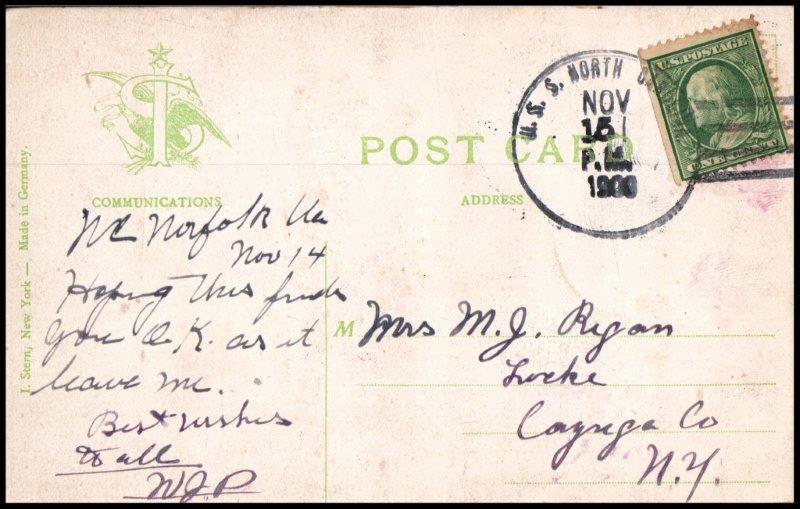 U.S. POSTAGE
ONE CENT
U. S. S. NORTH
NOV
15
P.M.
POST CARD
COMMUNICATIONS
ADDRESS
J. Stern, New York — Made in Germany.
Norfolk Va
Nov 14
Hoping this finds
you O.K. as it
leave me.
Best wishes
to all
WJP
M
Mrs M. J. Ryan
Locke
Cayuga Co
N.Y.